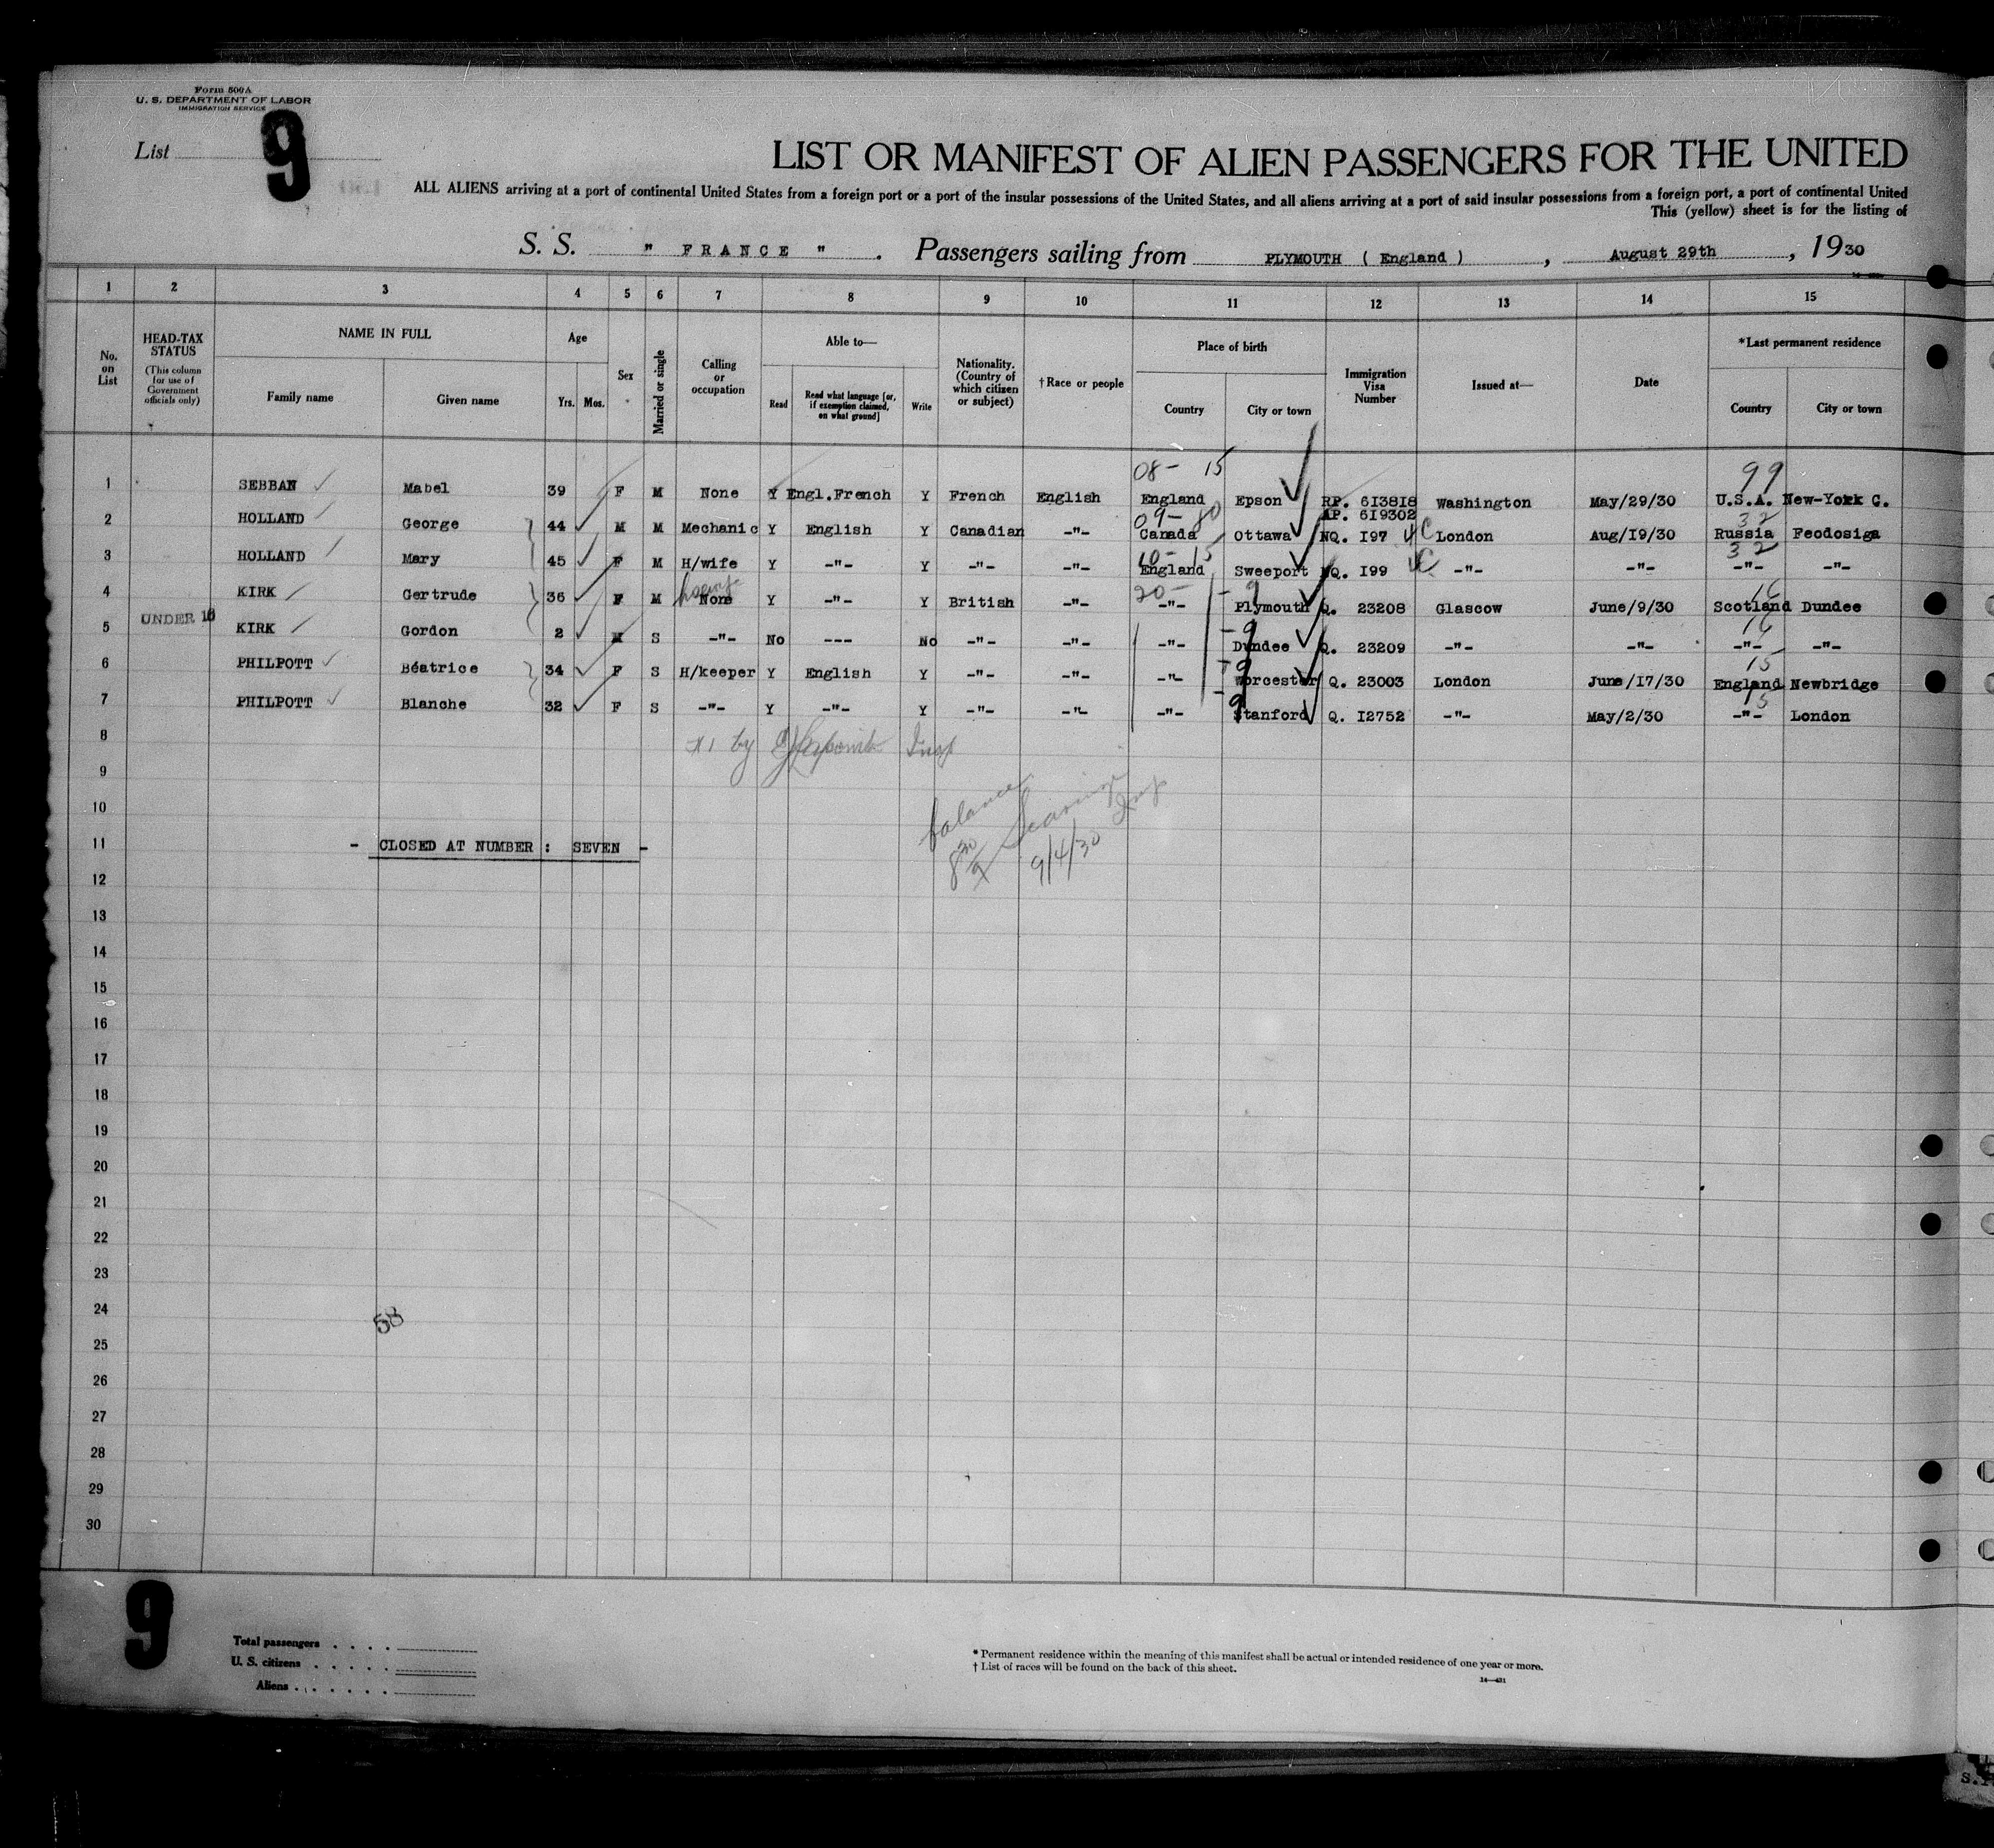 Form 500A
U. S. DEPARTMENT OF LABOR
IMMIGRATION SERVICE
List 9
LIST OR MANIFEST OF ALIEN PASSENGERS FOR THE UNITED
ALL ALIENS arriving at a port of continental United States from a foreign port or a port of the insular possessions of the United States, and all aliens arriving at a port of said insular possessions from a foreign port, a port of continental United
This (yellow) sheet is for the listing of
S. S. " FRANCE " . Passengers sailing from PLYMOUTH ( England ) , August 29th , 1930
1 2 3 4 5 6 7 8 9 10 11 12 13 14 15
No. on List
HEAD-TAX STATUS (This column for use of Government officials only)
NAME IN FULL
Family name Given name
Age
Yrs. Mos.
Sex
Married or single
Calling or occupation
Able to—
Read Read what language [or, if exemption claimed, on what ground] Write
Nationality. (Country of which citizen or subject)
†Race or people
Place of birth
Country City or town
Immigration Visa Number
Issued at—
Date
*Last permanent residence
Country City or town
08- 15 99
1 SEBBAN Mabel 39 F M None Y Engl.French Y French English England Epson RP. 613818 Washington May/29/30 U.S.A. New-York C.
AP. 619302
09- 80 32
2 HOLLAND George 44 M M Mechanic Y English Y Canadian -"- Canada Ottawa NQ. I97 4C London Aug/I9/30 Russia Feodosiga
10- 15 32
3 HOLLAND Mary 45 F M H/wife Y -"- Y -"- -"- England Sweeport NQ. I99 4C -"- -"- -"- -"-
20- 9 16
4 KIRK Gertrude 36 F M None Y -"- Y British -"- -"- Plymouth Q. 23208 Glascow June/9/30 Scotland Dundee
UNDER 16
9 16
5 KIRK Gordon 2 M S -"- No --- No -"- -"- -"- Dundee Q. 23209 -"- -"- -"- -"-
9 15
6 PHILPOTT Béatrice 34 F S H/keeper Y English Y -"- -"- -"- Worcester Q. 23003 London June/17/30 England Newbridge
9 15
7 PHILPOTT Blanche 32 F S -"- Y -"- Y -"- -"- -"- Stanford Q. I2752 -"- May/2/30 -"- London
8
9
10
balance
9/4/30
11 - CLOSED AT NUMBER : SEVEN -
12
13
14
15
16
17
18
19
20
21
22
23
24
58
25
26
27
28
29
30
9
Total passengers . . . .
U. S. citizens . . . . .
Aliens . . . . . .
* Permanent residence within the meaning of this manifest shall be actual or intended residence of one year or more.
† List of races will be found on the back of this sheet.